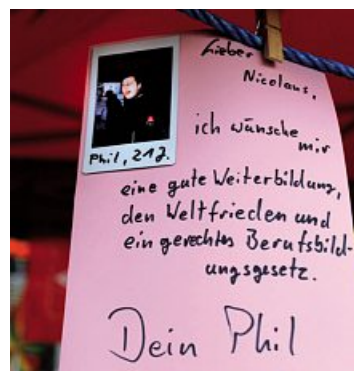 Lieber
Nicolaus,
ich wünsche
mir
eine gute Weiterbildung,
den Weltfrieden und
ein gerechtes Berufsbild-
ungsgesetz.
Dein Phil
Phil, 21J.